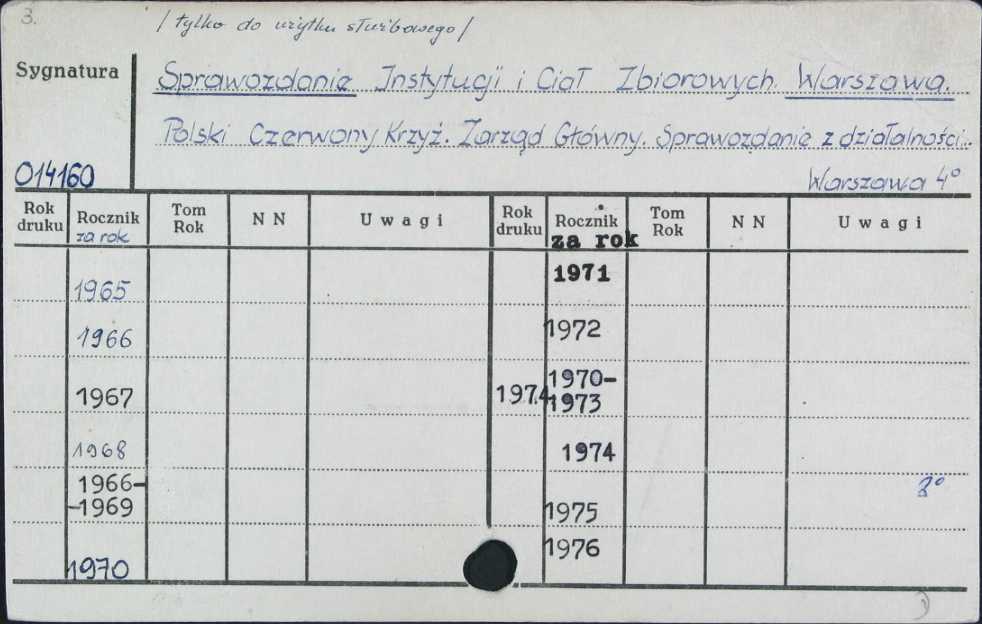 3.
/tylko do użytku służbowego/
Sygnatura
Sprawozdanie Instytucji i Ciał Zbiorowych. Warszawa.
Polski Czerwony Krzyż. Zarząd Główny. Sprawozdanie z działalności..
014160
Warszawa 4°
Rok druku Rocznik za rok Tom Rok N N Uwagi Rok druku Rocznik za rok Tom Rok N N Uwagi
1965 1971
1966 1972
1967 1974 1970-1973
1968 1974
1966-
-1969 8°
1975
1970 1976